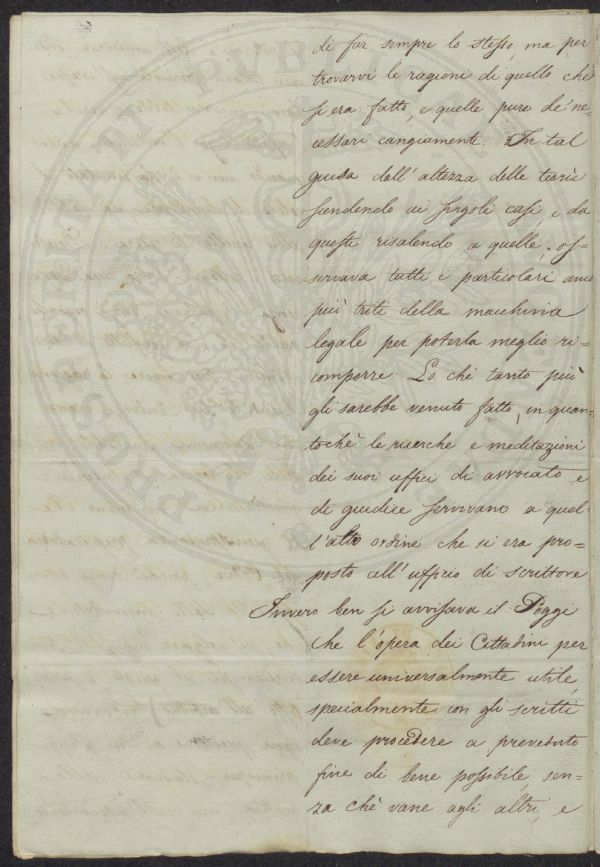 di far sempre lo stesso, ma per
trovarvi le ragioni di quello chè
si era fatto, e quelle pure de' ne=
cessari cangiamente. In tal
guisa dall'altezza delle teorie
scendendo ai singoli casi, e da
questi risalendo a quelle, os=
servava tutti i particolari anco
più triti della macchina
legale per poterla meglio ri=
comporre. Lo chè tanto più
gli sarebbe venuto fatto, in quan=
tochè le ricerche e meditazioni
dei suoi uffici di avvocato e
di giudice servivano a quel=
l'alto ordine che si era pro=
posto all'ufficio di scrittore.
Invero ben si avvisava il Poggi
che l'opera dei Cittadini per
essere universalmente utile,
specialmente con gli scritti
deve procedere a preveduto
fine di bene possibile, sen=
za chè vane agli altri, e
PROSPERITATI PUBLICAE